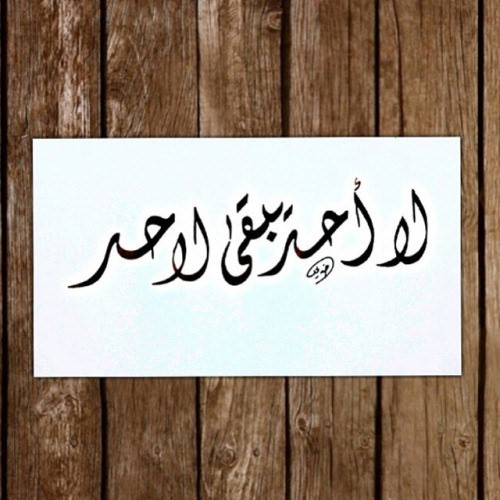 لا أحد يبقى لاحد